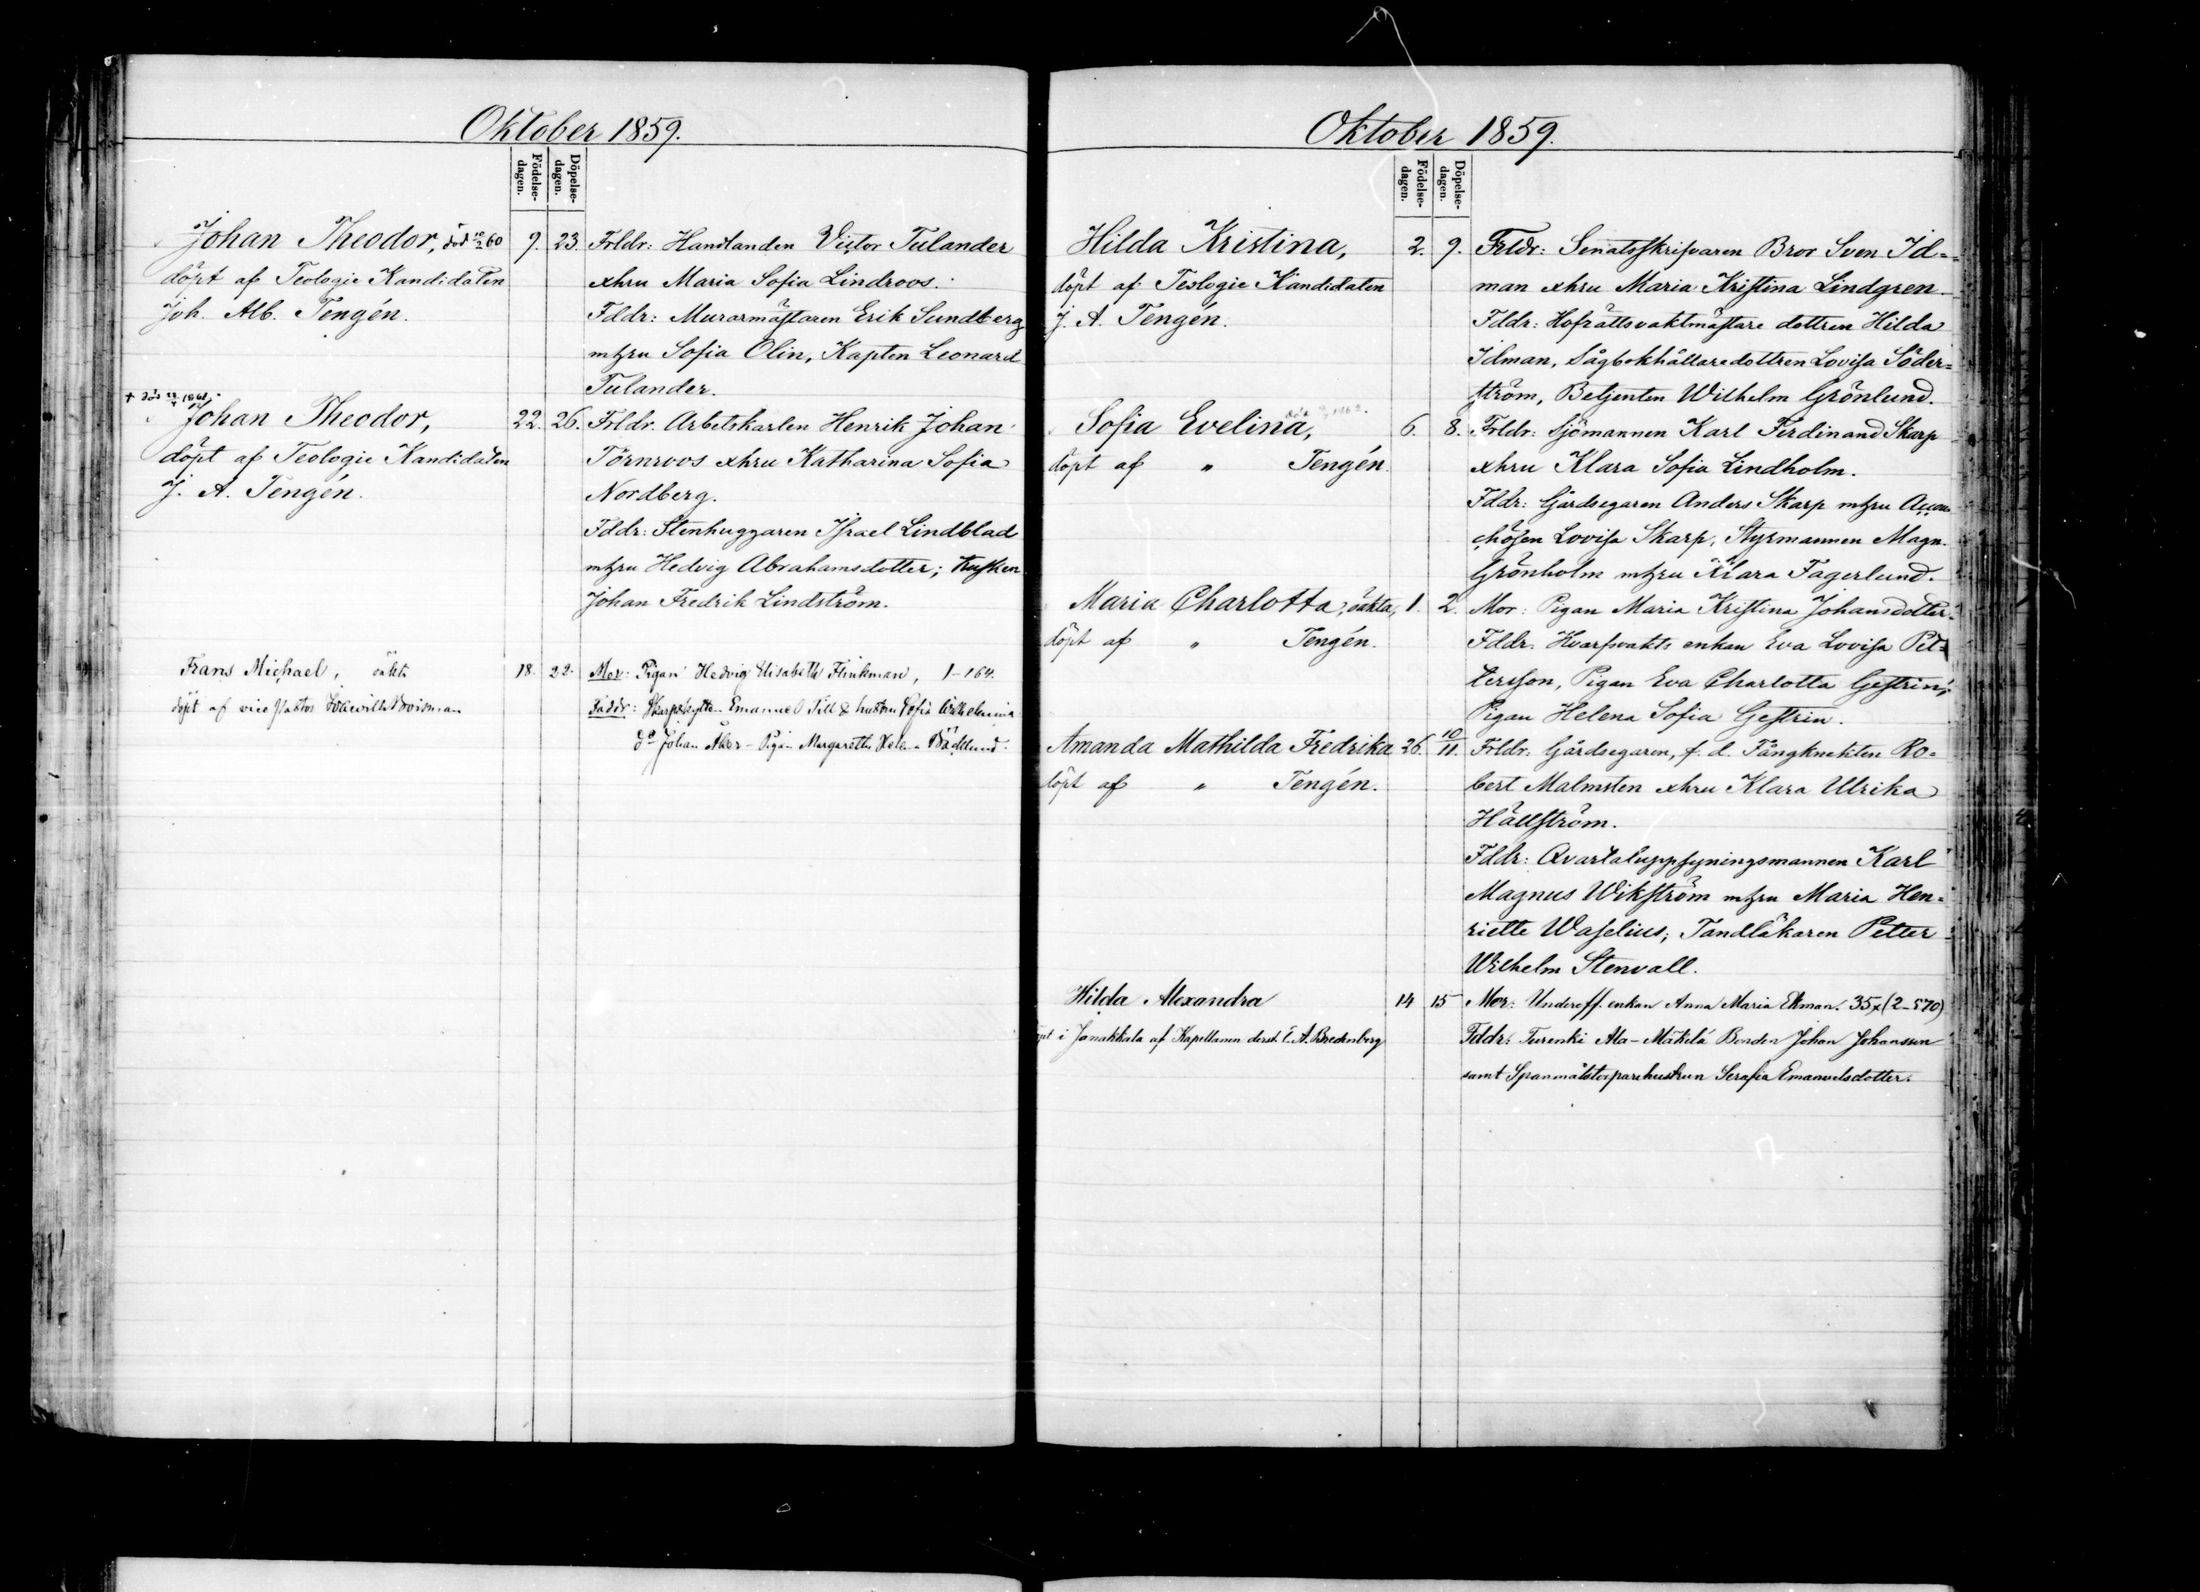 Oktober 1859.
Födelse-dagen.
Döpelse-dagen.
Johan Theodor, död 10/2 60 9. 23. Frldr: Handlanden Victor Tulander
döpt af Teologie Kandidaten xhru Maria Sofia Lindroos.
Joh. Alb. Tengén. Fddr: Murarmästaren Erik Sundberg
mhru Sofia Olin, Kapten Leonard
Tulander.
† död
Johan Theodor, 22. 26. Frldr. Arbetskarlen Henrik Johan
döpt af Teologie Kandidaten Törnroos xhru Katharina Sofia
J. A. Tengén. Nordberg.
Fddr: Stenhuggaren Israel Lindblad
mhru Hedvig Abrahamsdotter; Kusken
Johan Fredrik Lindström.
Frans Michael, oäkta 18. 22. Mor: Pigan Hedvig Elisabeth Flinkman, 1-164.
döpt af vice Pastor Faddr: Skarpskytten Emanuel Till & hustru Sofia Wilhelmina
do Johan Åker - Pigan Margaretha Helena Bäcklund.
Oktober 1859.
Födelse-dagen.
Döpelse-dagen.
Hilda Kristina, 2. 9. Frldr: Senatsskrifvaren Bror Sven Id=
döpt af Teologie Kandidaten man xhru Maria Kristina Lindgren.
J. A. Tengén. Fddr: Hofrättsvaktmästare dottren Hilda
Idman, Sågbokhållaredottren Lovisa Söder=
ström, Betjenten Wilhelm Grönlund.
Sofia Evelina, 6. 8. Frldr: Sjömannen Karl Ferdinand Skarp
döpt af " Tengén. xhru Klara Sofia Lindholm.
Fddr: Gårdsegaren Anders Skarp mhru Accou-
chösen Lovisa Skarp, Styrmannen Magn.
Grönholm mhru Klara Fagerlund.
Maria Charlotta, oäkta, 1. 2. Mor: Pigan Maria Kristina Johansdotter.
döpt af " Tengén. Fddr. Hvarfsvakts enkan Eva Lovisa Pet=
tersson, Pigan Eva Charlotta Gestrin,
Pigan Helena Sofia Gestrin.
Amanda Mathilda Fredrika 26. 10/11. Frldr: Gårdsegaren, f. d. Fångknekten Ro=
döpt af " Tengén. bert Malmsten xhru Klara Ulrika
Hällström.
Fddr: Qvartaluppsyningsmannen Karl
Magnus Wikström mhru Maria Hen=
riette Waselius; Tandläkaren Petter
Wilhelm Stenvall.
Hilda Alexandra 14 15 Mor: Underoff. enkan Anna Maria Ekman. 35x(2-570)
i Janakkala af Kapellanen derst. C. A. Bredenberg Fddr: Turenki Ala-Mäkilä Bonden Johan Johansson
samt Spanmålstorparehustrun Serafia Emanuelsdotter.